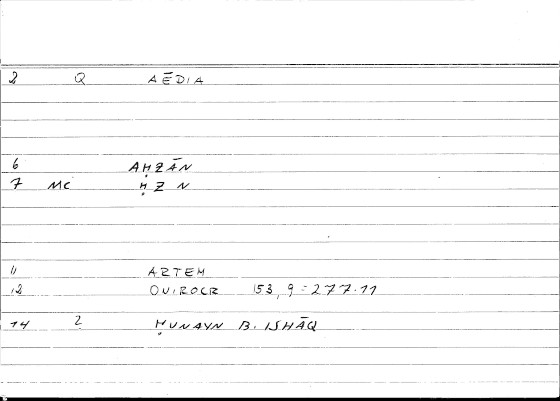 2 Q AĒDIA
6 AḤZĀN
7 MC ḤZN
11 ARTEM
12 OVIROCR 153, 9 = 277.11
14 2 ḤUNAYN B. ISHĀQ